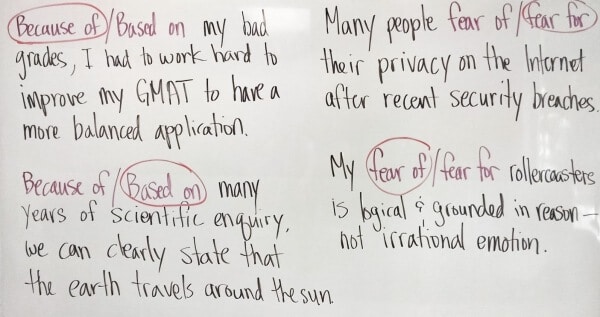 Because of/Based on my bad
grades, I had to work hard to
improve my GMAT to have a
more balanced application.
Because of/Based on many
years of scientific enquiry,
we can clearly state that
the earth travels around the sun.
Many people fear of/fear for
their privacy on the Internet
after recent security breaches.
My fear of/fear for rollercoasters
is logical & grounded in reason—
not irrational emotion.